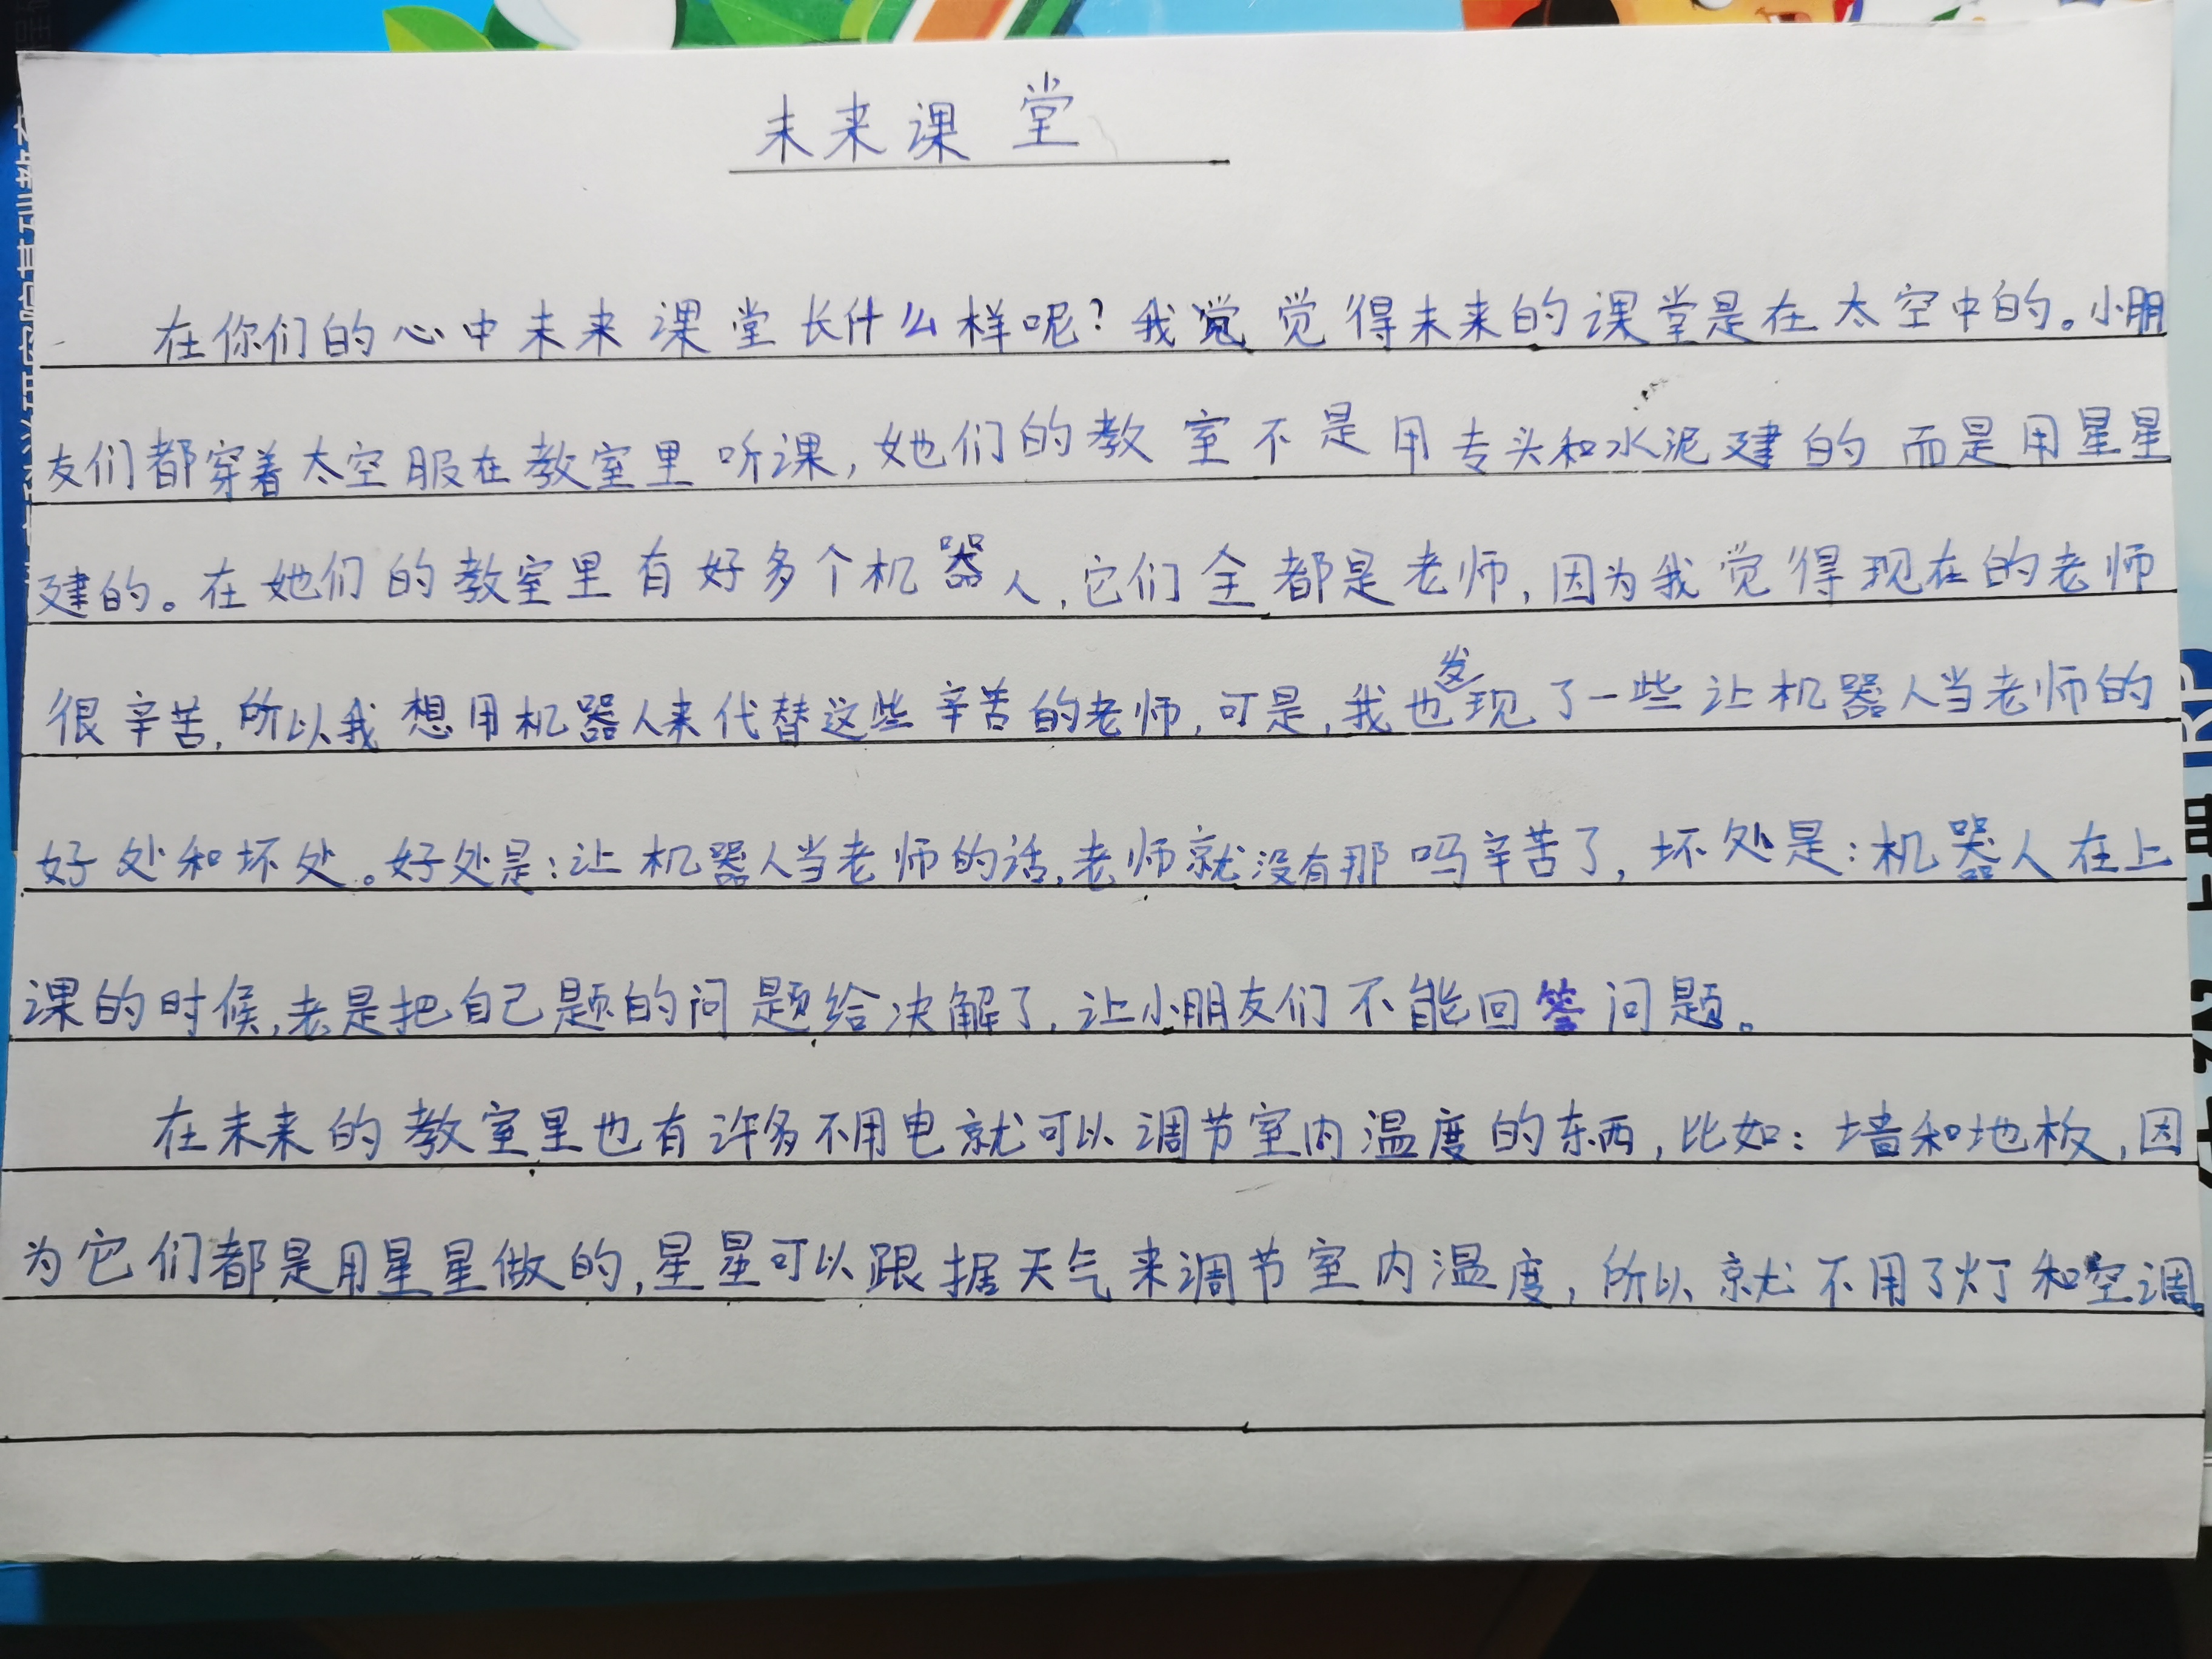 未来课堂
在你们的心中未来课堂长什么样呢？我觉觉得未来的课堂是在太空中的。小朋
友们都穿着太空服在教室里听课，她们的教室不是用专头和水泥建的而是用星星
建的。在她们的教室里有好多个机器人，它们全都是老师，因为我觉得现在的老师
很辛苦，所以我想用机器人来代替这些辛苦的老师，可是，我也发现了一些让机器人当老师的
好处和坏处。好处是：让机器人当老师的话，老师就没有那吗辛苦了，坏处是：机器人在上
课的时候，老是把自己题的问题给决解了，让小朋友们不能回答问题。
在未来的教室里也有许多不用电就可以调节室内温度的东西，比如：墙和地板，因
为它们都是用星星做的，星星可以跟据天气来调节室内温度，所以就不用了灯和空调。